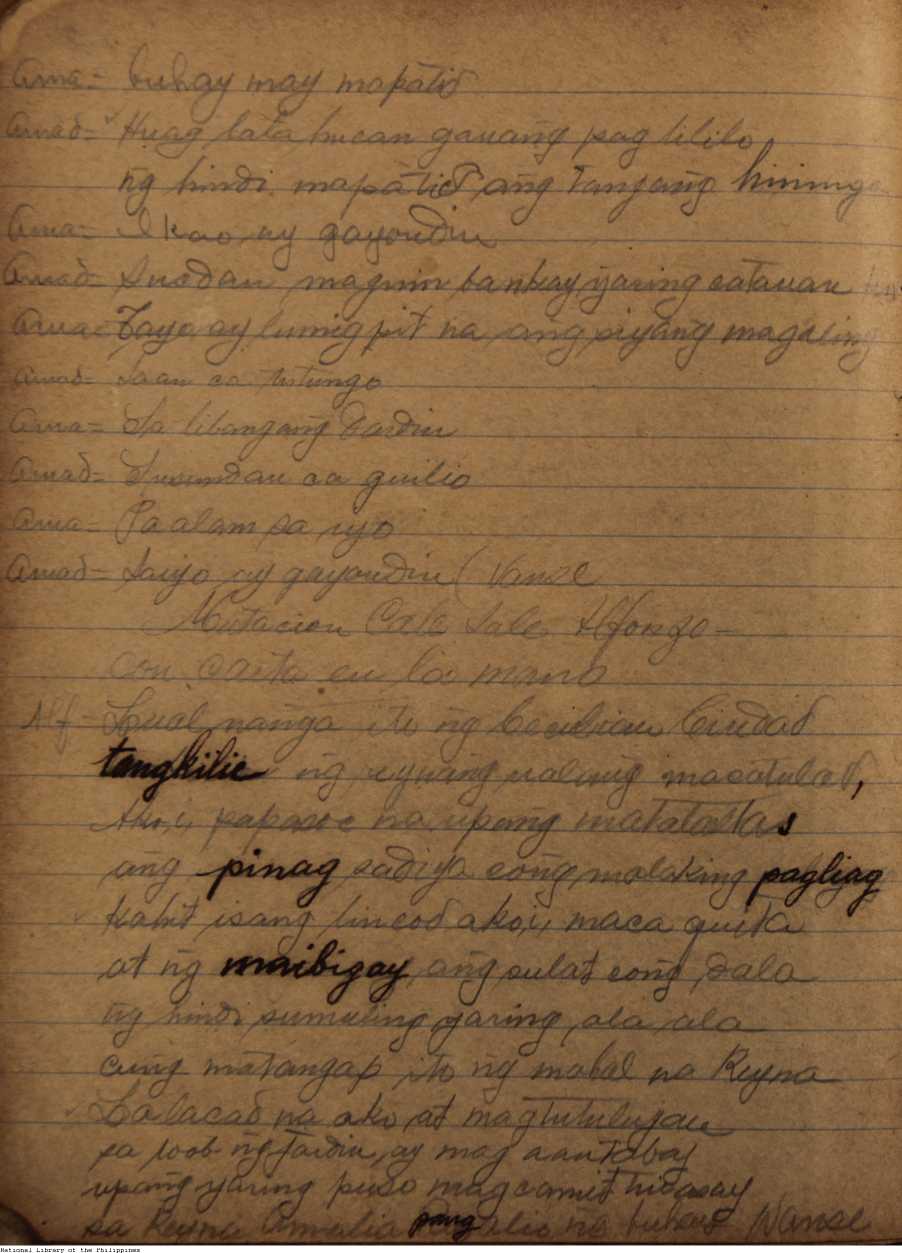 Ama= buhay may mapatid
Amad= Huag bata bucan gauang pag lililo
ng hindi mapatid ang tanang hininga
Ama= Ikao ay gayondin
Amad= Sundan maguin bankay yaring catauan
Ama= Tayo ay lumigpit na ang siyang magaling
Amad= Saan ca tutungo
Ama= Sa libangang Jardin
Amad= Susundan ca guilio
Ama= Paalam sa iyo
Amad= Saiyo ay gayondin (Vanse
Mutacion Calle Sale Alfonso
con carta en la mano
Alf= ito ng Ciudad
tangkilic ng macatulad,
Ako,i, papasoc na upang matatastas
ang pinag sadiya cong malaking pagliyag
Kahit isang lincod ako,i, maca quita
at ng maibigay ang sulat cong dala
ng hindi sumuling yaring ala ala
cung matangap ito ng mahal na Reyna
Lalacad na ako at magtutuluyan
sa loob ng Jardin ay mag aantabay
upang yaring puso magcamit hidasay
sa Reyna Amalia pang na buhay Vanse
National Library of the Philippines